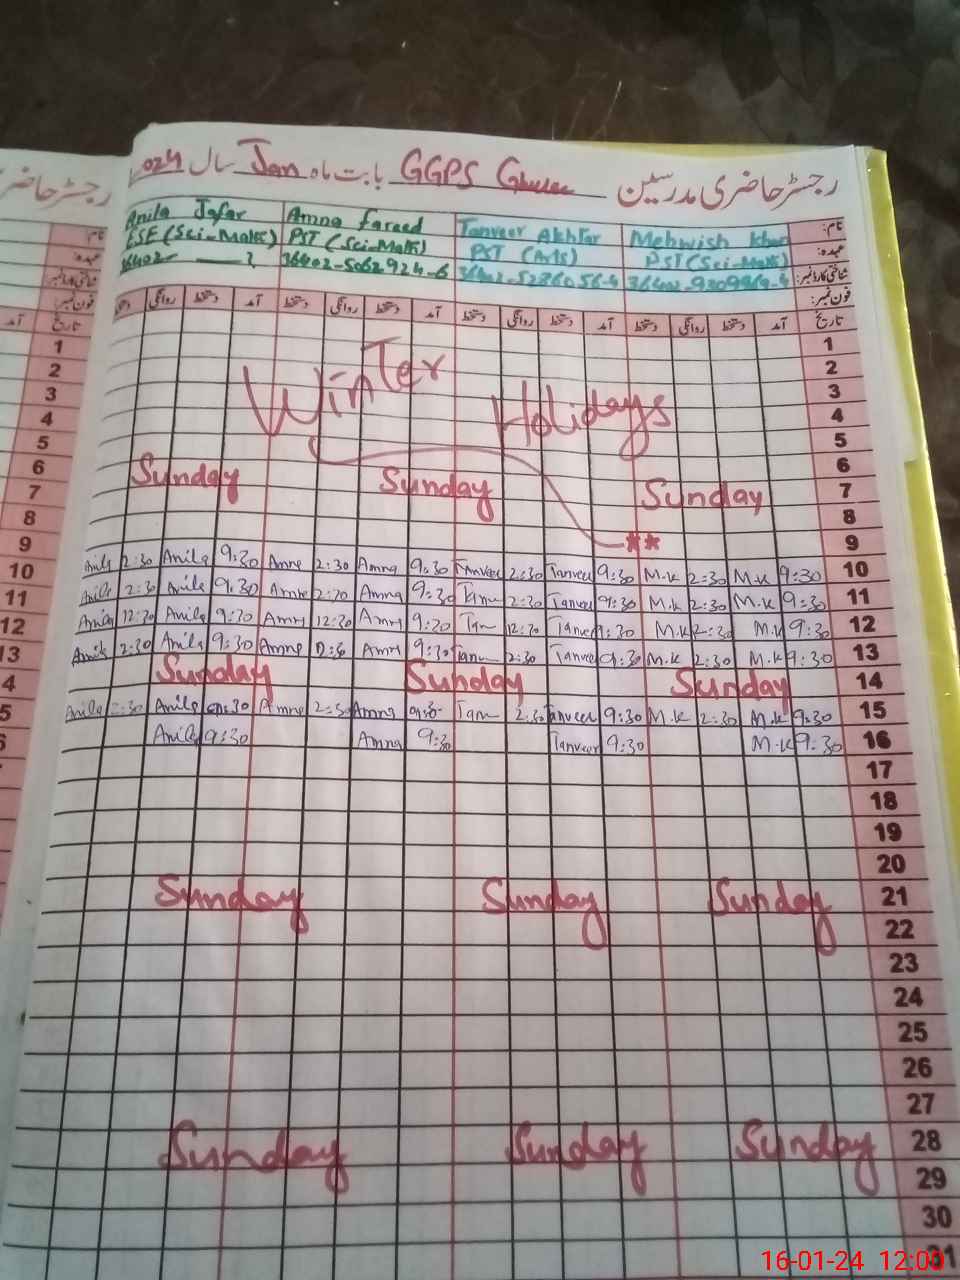 رجسٹر حاضری مدرسین GGPS بابت ماہ Jan سال 2024
نام: Mehwish Khan Tanveer Akhtar Amna fareed Anila Jafar
عہدہ: PST (Sci-Math) PST (Arts) PST (Sci-Math) ESE (Sci-Math)
شناختی کارڈ نمبر: 36402-5062924-6 36402-
فون نمبر:
تاریخ آمد دستخط روانگی دستخط آمد دستخط روانگی دستخط آمد دستخط روانگی دستخط آمد دستخط روانگی
1
2
Winter
3
4
Holidays
5
6
7 Sunday Sunday Sunday
8
9 **
10 9:30 M.K 2:30 M.K 9:30 Tanveer 2:30 Tanveer 9:30 Amna 2:30 Amna 9:30 Anila 2:30 Anila
11 9:30 M.K 2:30 M.K 9:30 Tanveer 2:30 Tan 9:30 Amna Amna 9:30 Anila 2:30 Anila
12 9:30 M.K 2:30 M.K 9:30 Tanveer 12:30 Tan 9:30 Amn 12:30 Amn 9:30 Anila 12:30 Anila
13 9:30 M.K 2:30 M.K 9:30 Tanveer 2:30 Tan 9:30 Amn Amna 9:30 Anila 2:30 Anila
14 Sunday Sunday Sunday
15 9:30 M.K 2:30 M.K 9:30 Tanveer 2:30 Tan 09:30 Amna 2:30 Amna 09:30 Anila 2:30 Anila
16 9:30 M.K 9:30 Tanveer 9:30 Amna 9:30 Anila
17
18
19
20
21 Sunday Sunday Sunday
22
23
24
25
26
27
28 Sunday Sunday Sunday
29
30
31
16-01-24 12:00